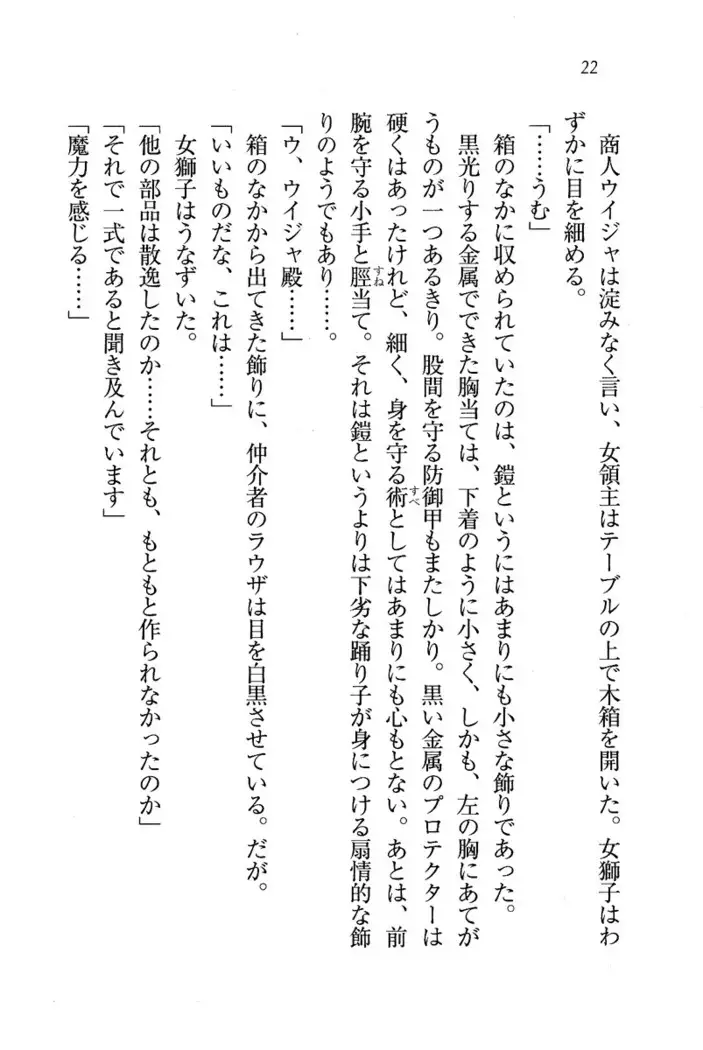 22
商人ウイジャは淀みなく言い、女領主はテーブルの上で木箱を開いた。女獅子はわ
ずかに目を細める。
「……うむ」
箱のなかに収められていたのは、鎧というにはあまりにも小さな飾りであった。
黒光りする金属でできた胸当ては、下着のように小さく、しかも、左の胸にあてが
うものが一つあるきり。股間を守る防御甲もまたしかり。黒い金属のプロテクターは
硬くはあったけれど、細く、身を守る術すべとしてはあまりにも心もとない。あとは、前
腕を守る小手と脛すね当て。それは鎧というよりは下劣な踊り子が身につける扇情的な飾
りのようでもあり……。
「ウ、ウイジャ殿……」
箱のなかから出てきた飾りに、仲介者のラウザは目を白黒させている。だが。
「いいものだな、これは……」
女獅子はうなずいた。
「他の部品は散逸したのか……それとも、もともと作られなかったのか」
「それで一式であると聞き及んでいます」
「魔力を感じる……」